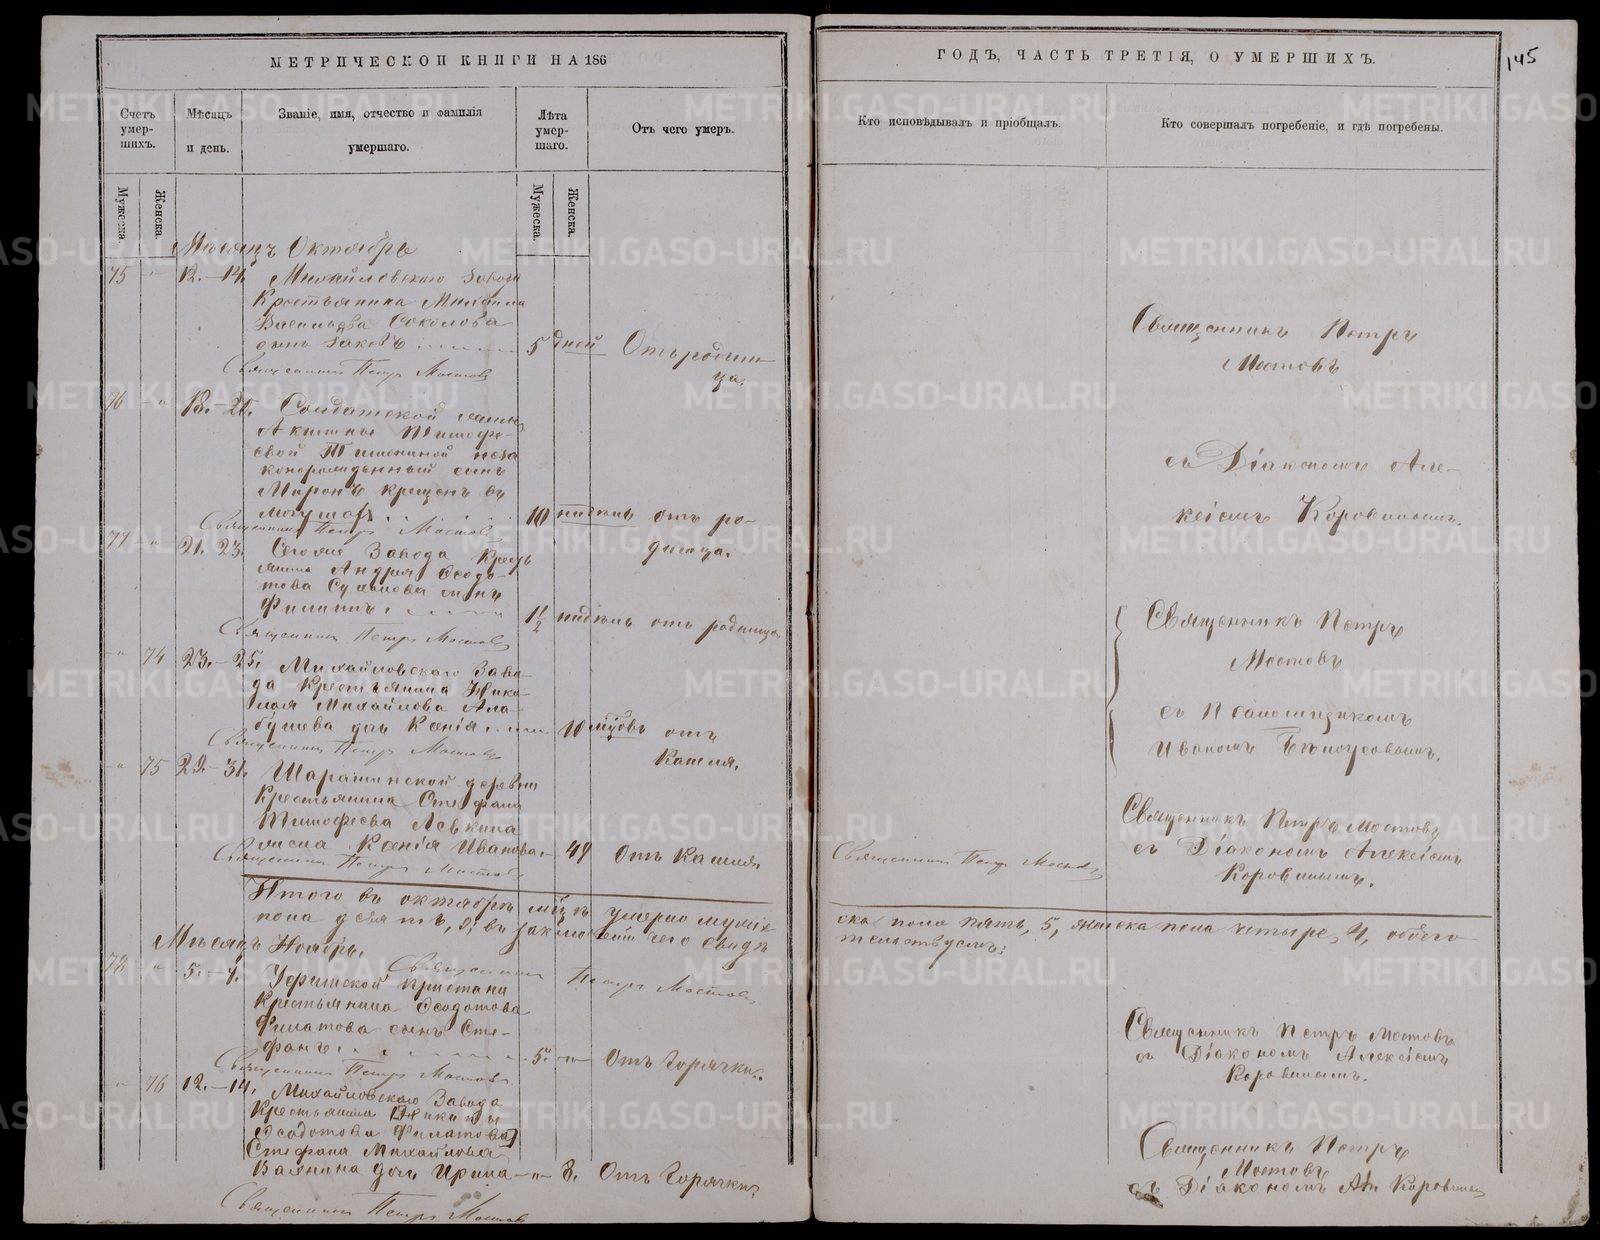 МЕТРИЧЕСКОЙ КНИГИ НА 186
Счетъ умер- шихъ.
Мѣсяцъ и день.
Званіе, имя, отчество и фамилія умершаго.
Лѣта умер- шаго.
Отъ чего умеръ.
Мужеска.
Женска.
Мужеска.
Женска.
Мѣсяцъ Октябрь
75 " 12.-14. Михайловскаго Завода
Крестьянина Михаила
Васильева Соколова
сынъ Іаковъ 5 дней Отъ родим-
ца.
Священникъ Петръ Мостовъ
76 " 18.-20. Солдатской жены
Акилины Тимофе-
евой Тишениной неза
коннорожденный сынъ
Миронъ крещенъ въ
10 отъ ро-
димца.
Священникъ Петръ Мостовъ
77 " 21. 23. Сегоже Завода Кресть
янина Андрея Ѳеодо-
това сынъ
Филиппъ 1½ недѣль отъ родимца
Священникъ Петръ Мостовъ
" 74 23.-25. Михайловскаго Заво-
да Крестьянина Нико-
лая Михайлова Ала-
бушева дочь Ксенія 10 отъ
Кашля.
Священникъ Петръ Мостовъ
" 75 29.-31. Шарашинской деревни
Крестьянина Стефана
Тимофеева Левкина
жена Ксенія Иванова 49 Отъ Кашля
Священникъ Петръ Мостовъ
Итого въ октябрѣ м-цѣ умерло муже
пола девять, 9; въ заключеніи чего свидѣ
Мѣсяцъ Ноябрь.
Священникъ Петръ Мостовъ
78 " 5.-7. Уфимской пристани
Крестьянина Ѳеодотова
Филатова сынъ Сте-
фанъ 5. Отъ горячки.
Священникъ Петръ Мостовъ
" 76 12.-14. Михайловскаго Завода
Крестьянина Никиты
Ѳеодотова Филатова
Стефана Михайлова
дочь Ирина 8. Отъ горячки
Священникъ Петръ Мостовъ
ГОДЪ, ЧАСТЬ ТРЕТІЯ, О УМЕРШИХЪ.
145
Кто исповѣдывалъ и пріобщалъ.
Кто совершалъ погребеніе, и гдѣ погребены.
Священникъ Петръ
Мостовъ
съ Діакономъ Але-
ксіемъ Коровинымъ.
Священникъ Петръ
Мостовъ
съ Псаломщикомъ
Иваномъ Бѣлоусовымъ.
Священникъ Петръ Мостовъ
Священникъ Петръ Мостовъ
съ Діакономъ Алексіемъ
Коровинымъ.
ска пола пять, 5, женска пола четыре, 4, обоего
тельствуемъ:
Священникъ Петръ Мостовъ
съ Діакономъ Алексіемъ
Коровинымъ.
Священникъ Петръ
Мостовъ
съ Діакономъ Ал. Коровинымъ
METRIKI.GASO-URAL.RU